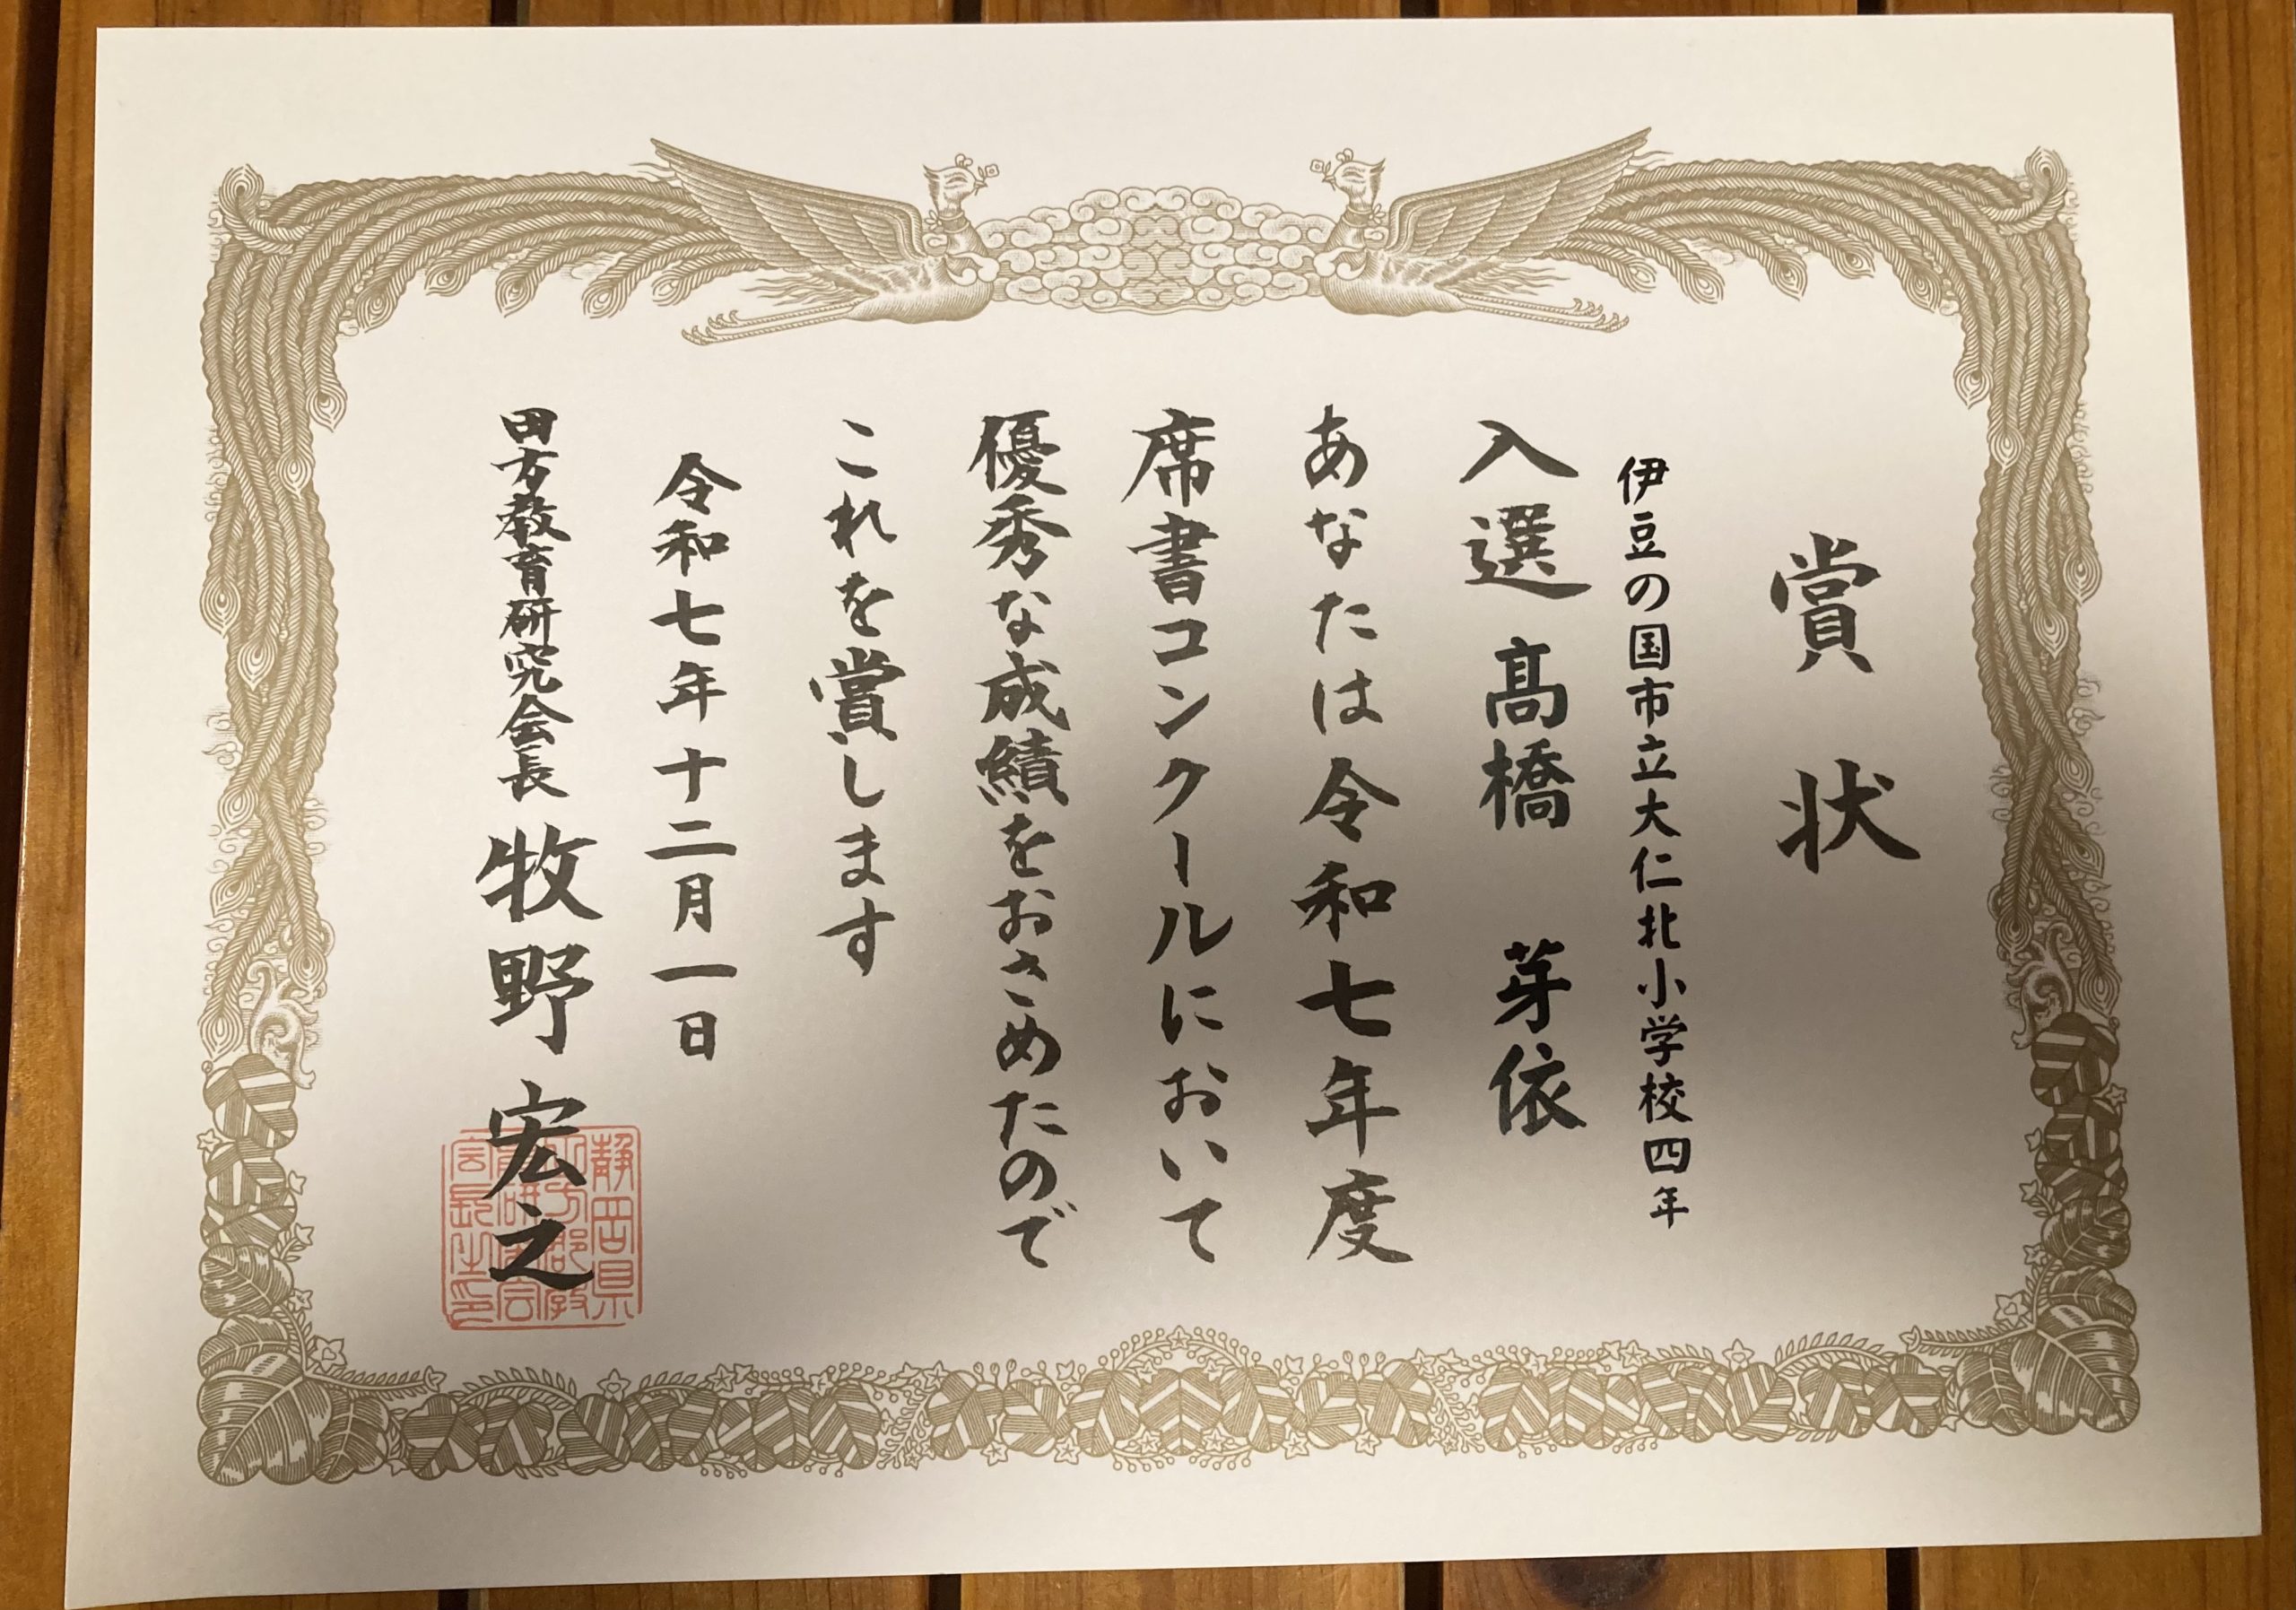 賞状
伊豆の国市立大仁北小学校四年
入選 髙橋 芽依
あなたは令和七年度
席書コンクールにおいて
優秀な成績をおさめたので
これを賞します
令和七年十二月一日
田方教育研究会長 牧野宏之
静岡県
田方郡教
育研究会
会長之印